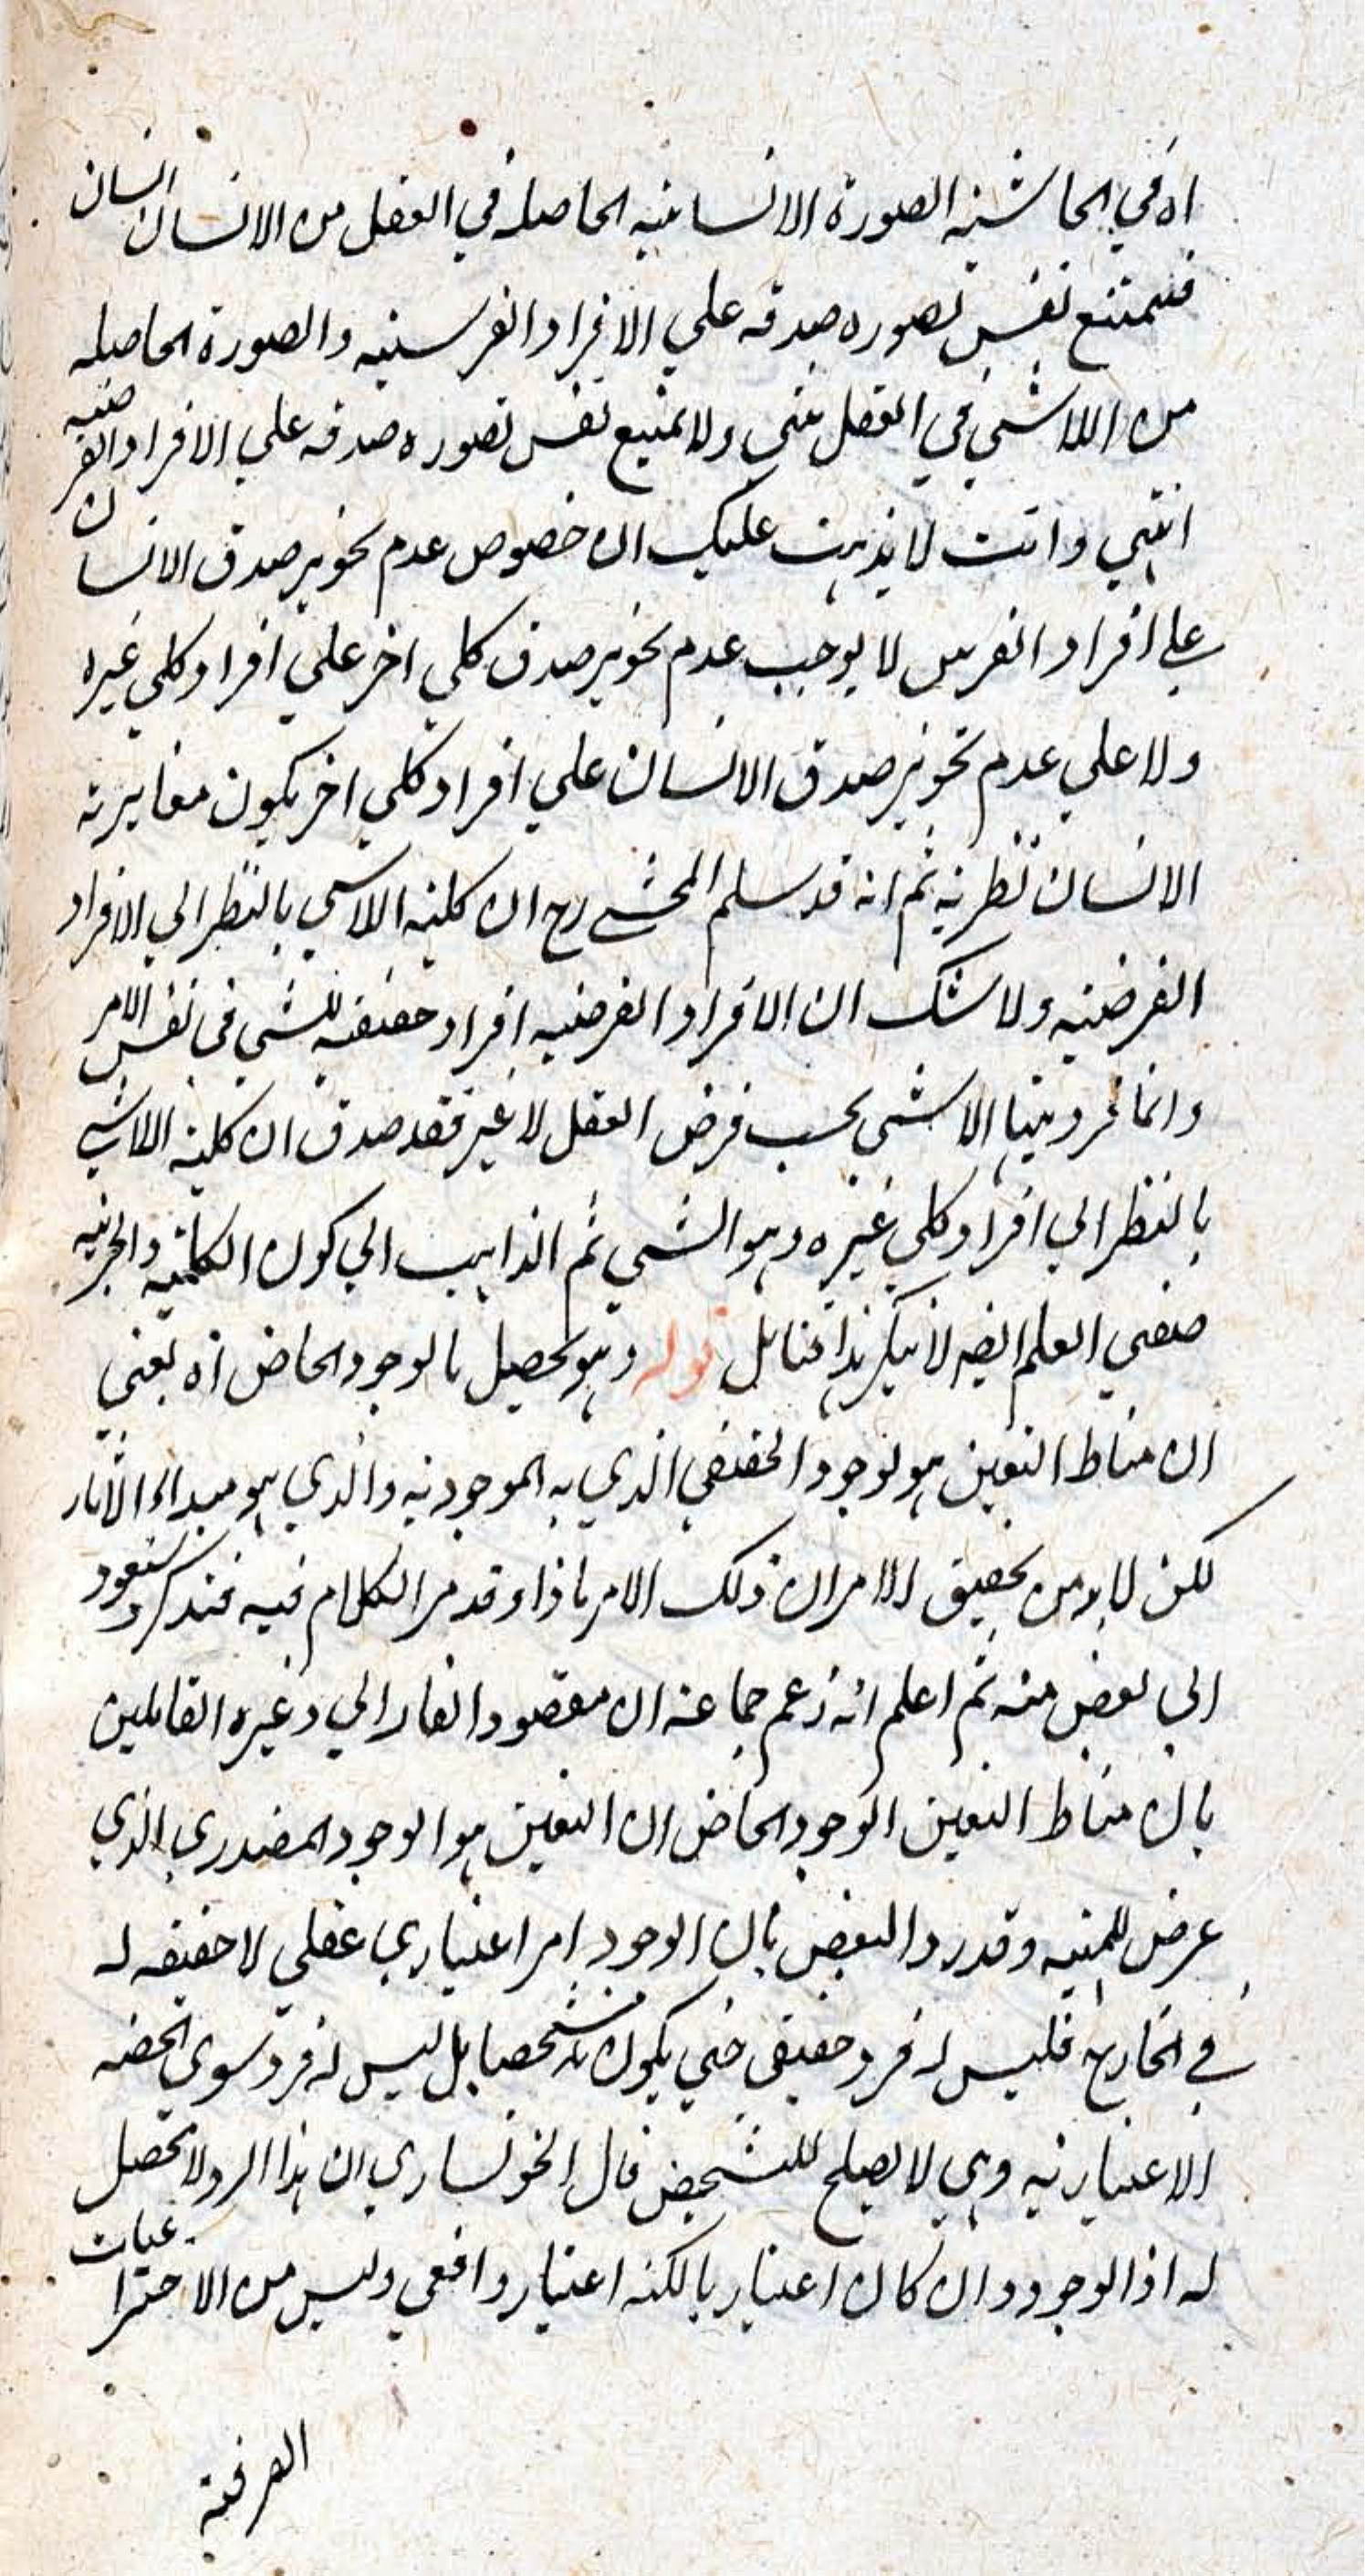 اه في الحاشية الصورة الانسانية الحاصلة في العقل من الانسان انسان
فيمتنع نفس تصوره صدقه علي الافراد الفرسية والصورة الحاصله
من اللاشي في العقل شي ولا يمتنع نفس تصوره صدقه علي الافراد الفرضية
انتهي وانت لا يذهب عليك ان خصوص عدم تجويز صدق الانسان
علي افراد الفرس لا يوجب عدم تجويز صدق كلي اخر علي افراد كلي غيره
ولا علي عدم تجويز صدق الانسان علي افراد كلي اخر يكون مغايرته
الانسان نظرية ثم انه قد سلم المحشي رح ان كلية اللاشي بالنظر الي الافراد
الفرضية ولا شك ان الافراد الفرضيه افراد حقيقة للشي في نفس الامر
وانما فرديتها الاشي بحسب فرض العقل لا غير فقد صدق ان كلية اللاشي
بالنظر الي افراد كلي غيره وهو الشي ثم الذاهب الي كون الكلية والجزئية
صفتي العلم ايضا لا ينكر هذا فتامل قوله وهو يحصل بالوجود الخاص اه يعني
ان مناط التعين هو لوجود الحقيقي الذي به الموجودية والذي هو مبداء الاثار
لكن لا بد من تحقيق الامر ان ذلك الامر ماذا وقد مر الكلام فيه فتذكر وسنعود
الي بعض منه ثم اعلم انه زعم جماعة ان مقصود الفارابي وغيره القايلين
بان مناط التعين الوجود الخاص ان التعين هو الوجود المصدري الذي
عرض للمهية وقد رد البعض بان الوجود امر اعتباري عقلي لا حقيقه له
في الخارج فليس له فرد حقيقي حتي يكون مشخصا بل ليس له فرد سوي الحصه
الاعتبارية وهي لا يصلح للتشخص قال الخونساري ان هذا الرد لا تحصل
له اذ الوجود وان كان اعتباريا لكنه اعتبار واقعي وليس من الاختراعيات
الصرفية